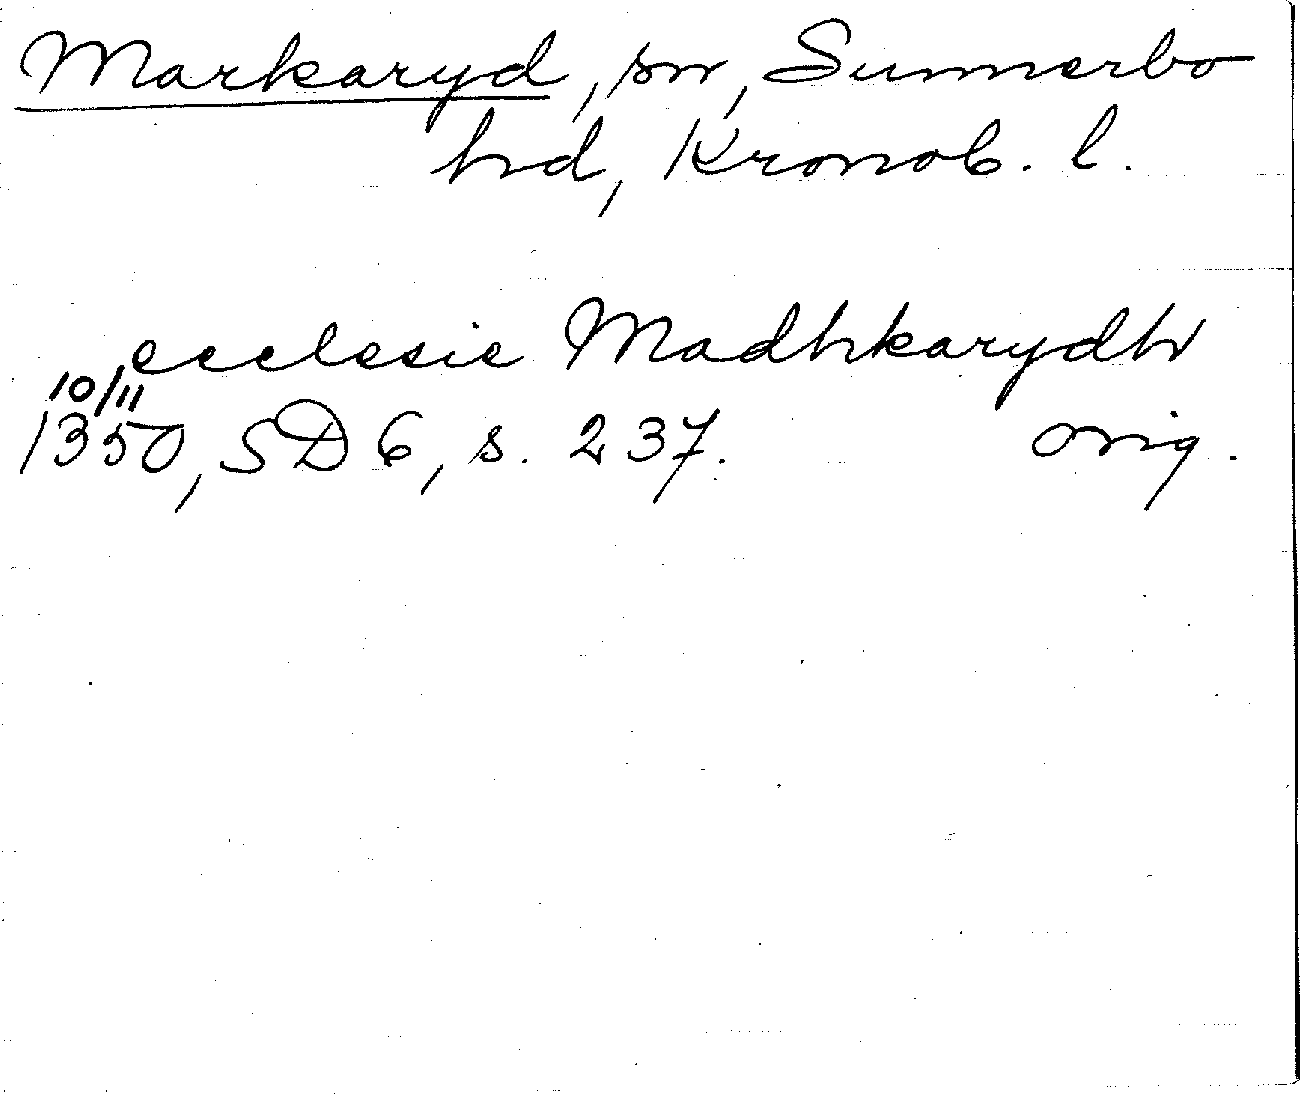 Markaryd, sn, Sunnerbo
hd, Kronob. l.
ecclesie Madhkarydh
10/11
1350, SD 6, s. 237. orig.